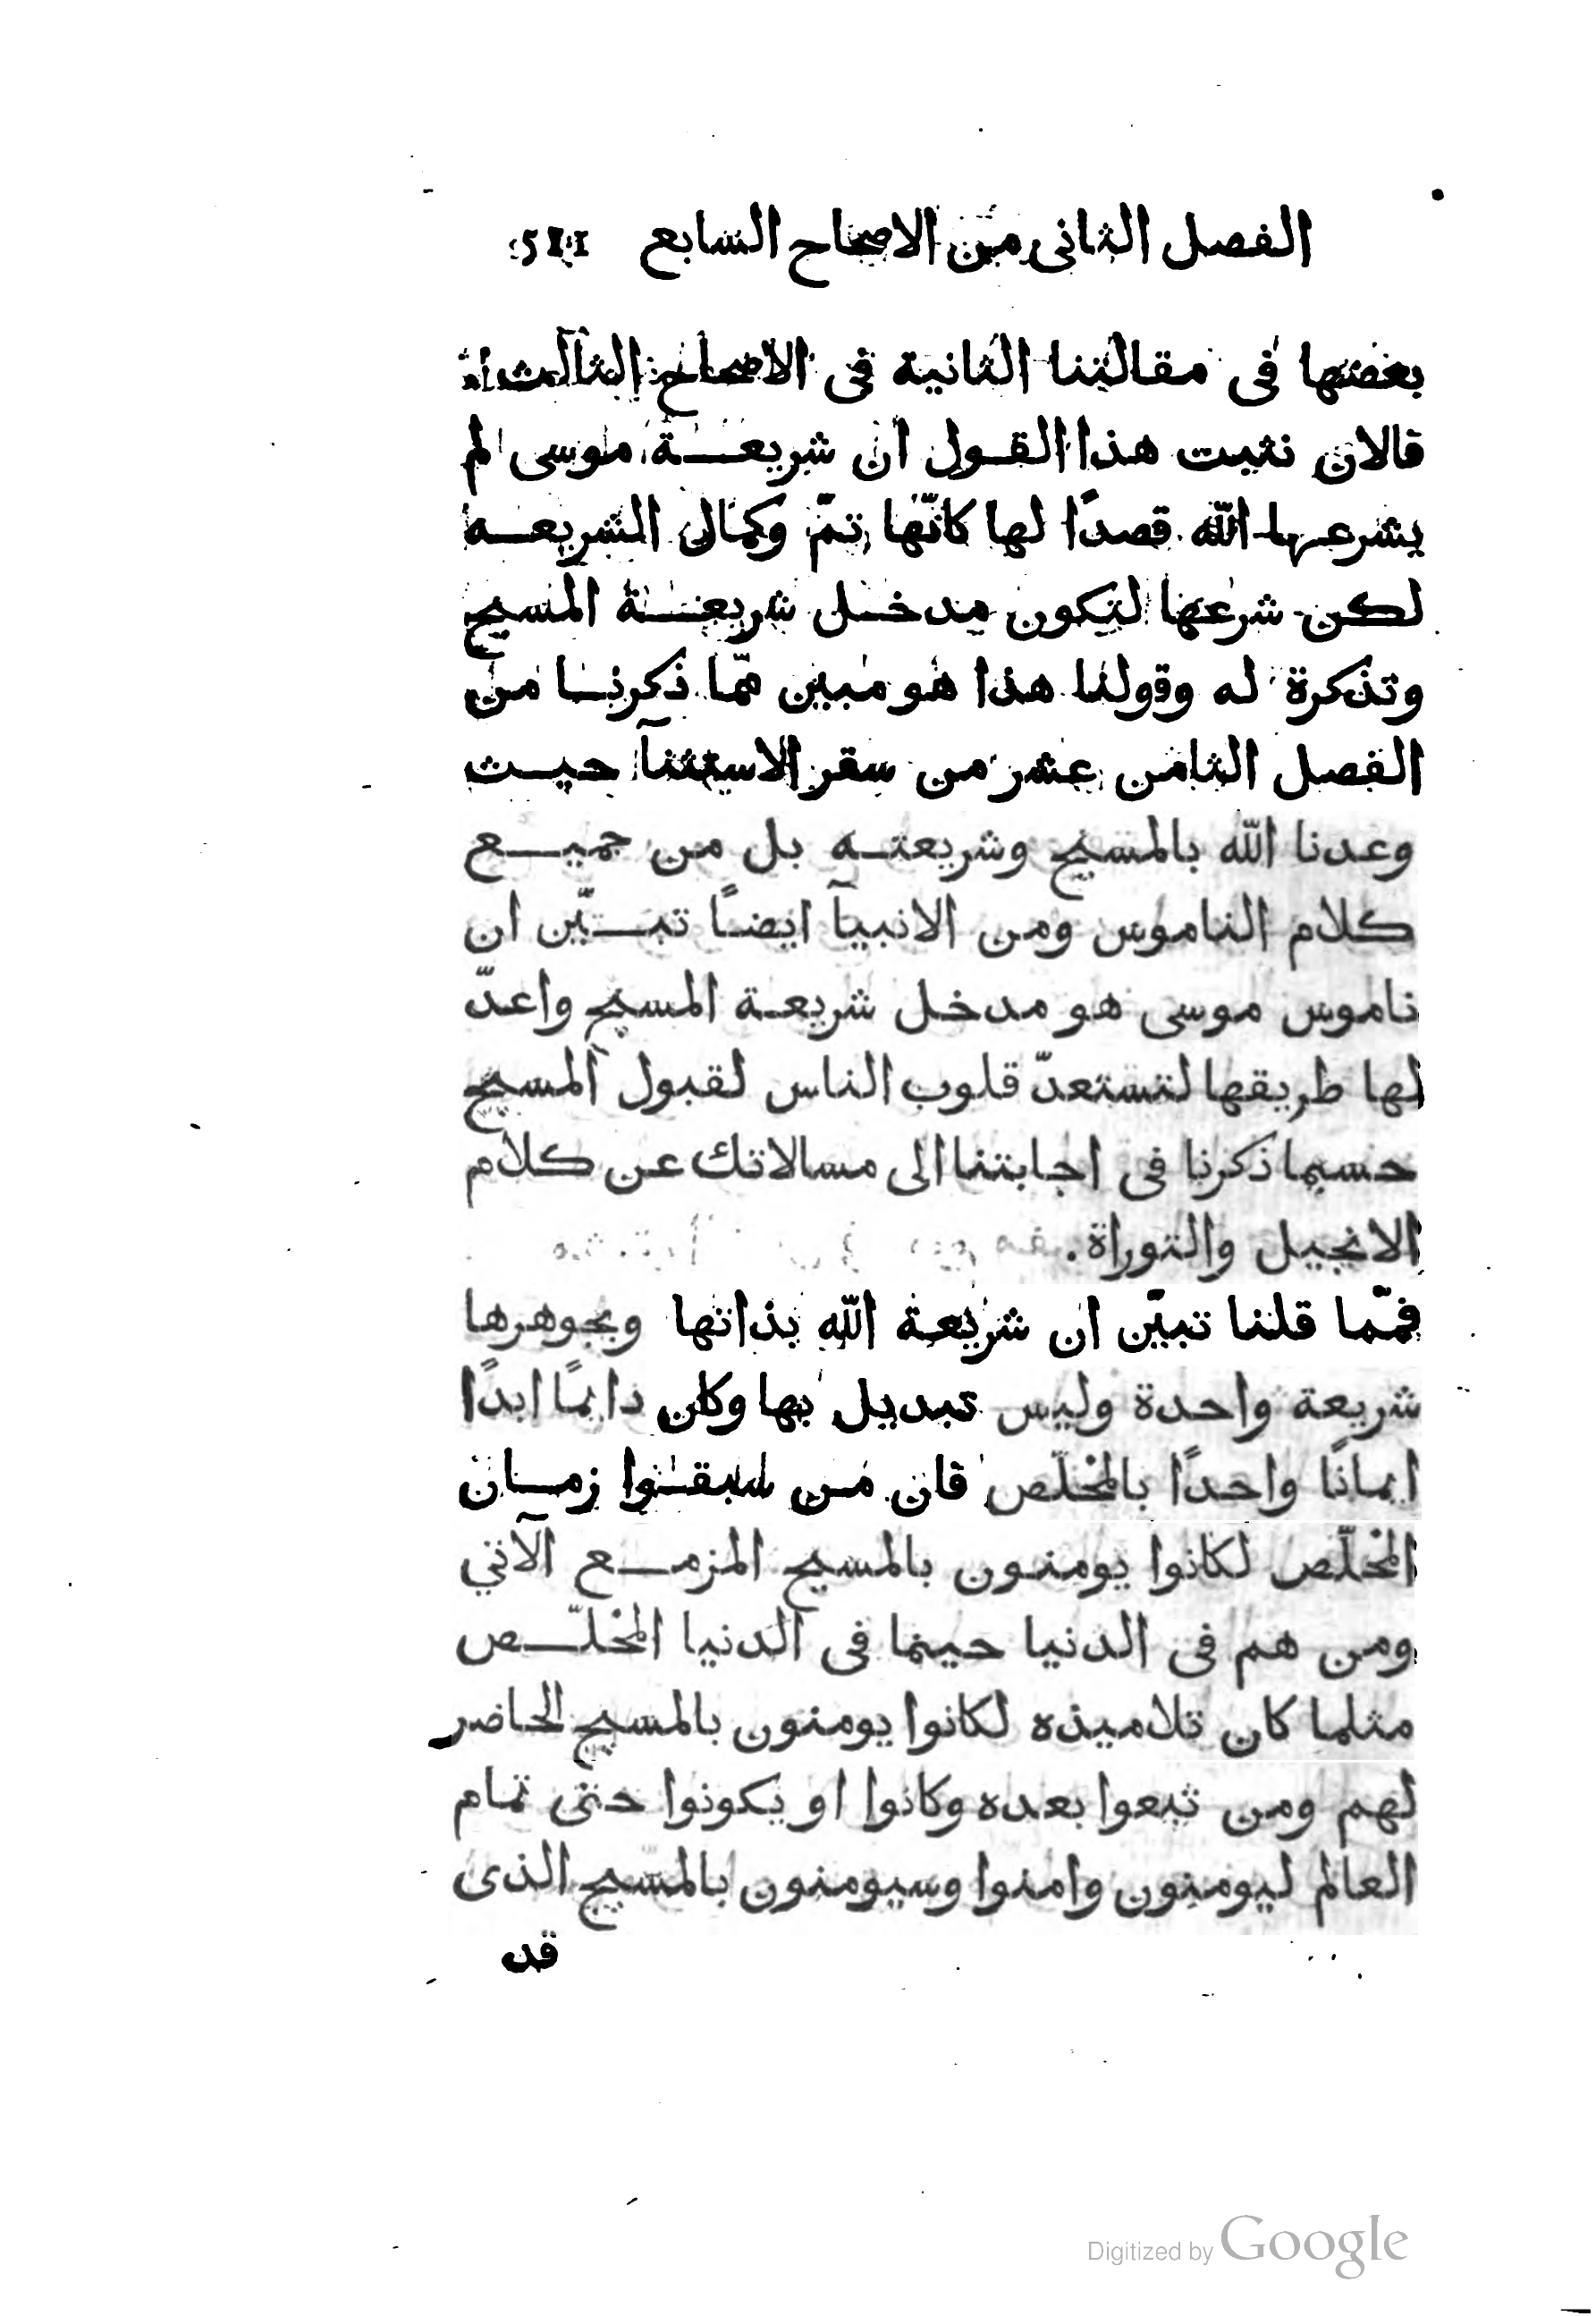 الفصل الثانى من الاصحاح السابع 511
بعضها فى مقالتنا الثانية فى الاصحاح الثالث
فالان نثبت هذا القول ان شريعة موسى لم
يشرعها اللّه قصدًا لها كانّها تمّ وكمال الشريعه
لكن شرعها لتكون مدخل شريعة المسيح
وتذكرة له وقولنا هذا هو مبين ممّا ذكرنا من
الفصل الثامن عشر من سفر الاستثنآ حيث
وعدنا اللّه بالمسيح وشريعته بل من جميع
كلام الناموس ومن الانبيآ ايضًا تبيّن ان
ناموس موسى هو مدخل شريعة المسيح واعدّ
لها طريقها لتستعدّ قلوب الناس لقبول المسيح
حسبما ذكرنا فى اجابتنا الى مسالاتك عن كلام
الانجيل والتوراة.
فممّا قلنا تبيّن ان شريعة اللّه بذاتها وبجوهرها
شريعة واحدة وليس تبديل بها وكان دايمًا ابدًا
ايمانًا واحدًا بالمخلّص فان من سبقوا زمان
المخلّص لكانوا يومنون بالمسيح المزمع الآتي
ومن هم فى الدنيا حينما فى الدنيا المخلّص
مثلما كان تلاميذه لكانوا يومنون بالمسيح الحاضر
لهم ومن تبعوا بعده وكانوا او يكونوا حتى تمام
العالم ليومنون وامنوا وسيومنون بالمسيح الذى
قد
Digitized by Google